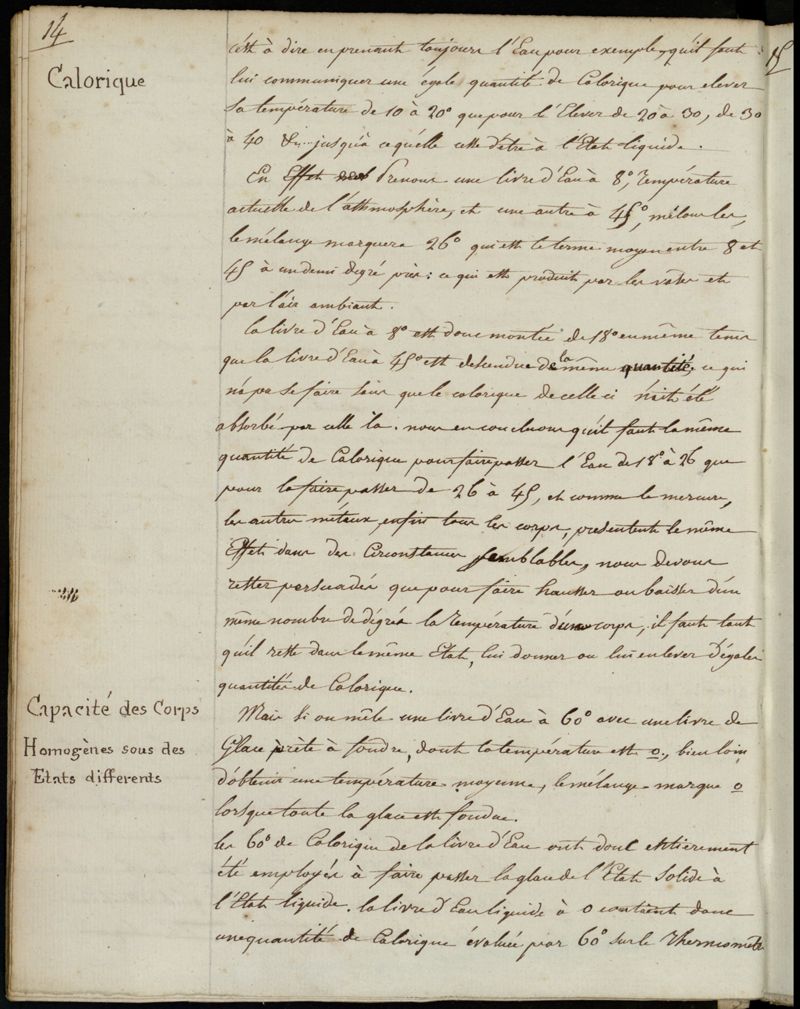 14
15
Calorique
c'est à dire en prenant toujours l'Eau pour exemple, qu'il faut
lui communiquer une égale quantité de Calorique pour elever
sa température de 10 à 20° que pour l'Elever de 20 à 30, de 30
à 40 &c... jusqu'à ce qu'elle cesse d'etre à l'Etat liquide.
En Effet Prenons une livre d'Eau à 8°, Température
actuelle de l'athmosphère, et une autre à 45°, mélons les,
le mélange marquera 26° qui est le terme moyen entre 8 et
45 à un demi degré près : ce qui est produit par les vases et
par l'air ambiant.
La livre d'Eau à 8° est donc montée de 18° en même tems
que la livre d'Eau à 45° est descendue de la même quantité, ce qui
n'a pu se faire sans que le calorique de celle ci n'ait été
absorbé par celle là. nous en concluons qu'il faut la même
quantité de Calorique pour faire passer l'Eau de 18° à 26 que
pour la faire passer de 26 à 45, et comme le mercure,
les autres métaux, enfin tous les corps, présentent le même
Effet dans des Circonstances semblables, nous devons
rester persuadés que pour faire hausser ou baisser d'un
même nombre de dégrés la Température d'un corps, il faut tant
qu'il reste dans le même Etat, lui donner ou lui enlever d'égales
quantités de Calorique.
Capacité des Corps
Homogènes sous des
Etats differents
Mais si on mêle une livre d'Eau à 60° avec une livre de
Glace prète à fondre, dont la température est 0, bien loin
d'obtenir une température moyenne, le mélange marque 0
lorsque toute la glace est fondue.
les 60° de Calorique de la livre d'Eau ont donc entierement
été employés à faire passer la glace de l'Etat solide à
l'Etat liquide. la livre d'Eau liquide à 0 contient donc
une quantité de Calorique évaluée par 60° sur le Thermomètre